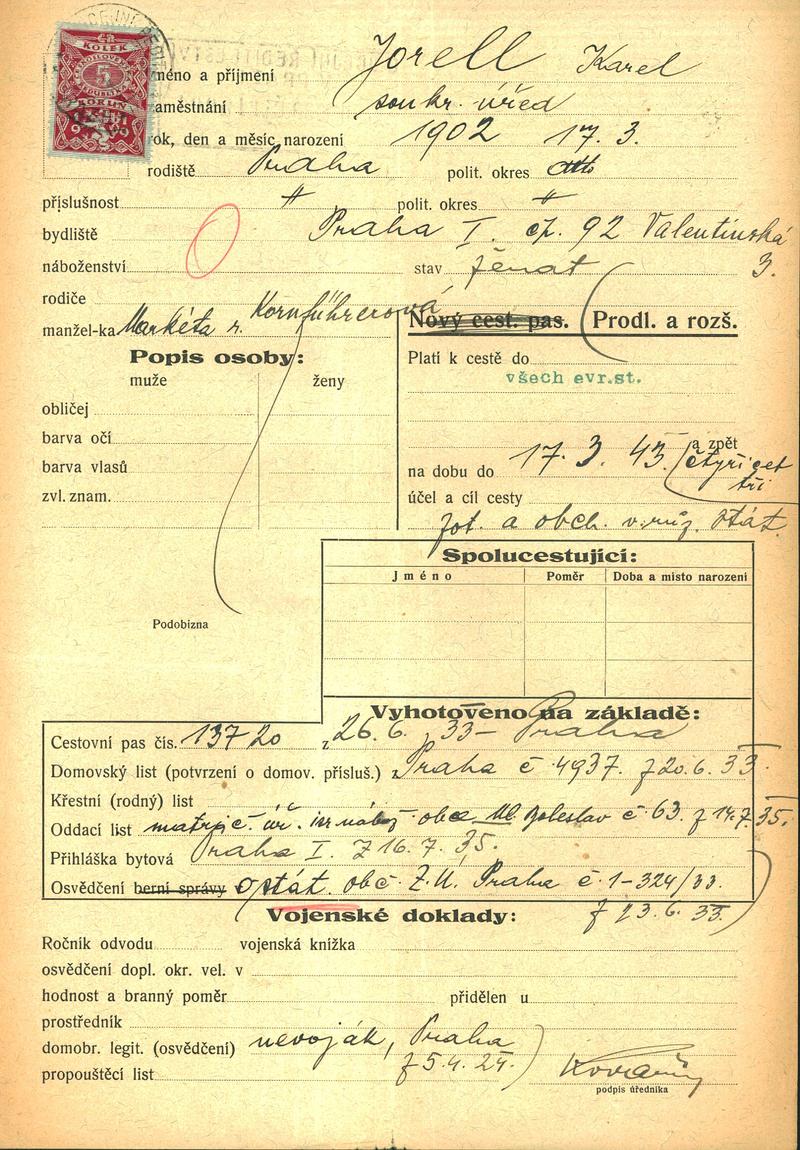 KOLEK
5
KORUN
Jméno a příjmení Jorell Karel
zaměstnání soukr. úřed
rok, den a měsíc narození 1902 17. 3.
rodiště Praha polit. okres dtto
příslušnost " polit. okres "
bydliště Praha I. čp. 92 Valentinská
náboženství stav ženat 3.
rodiče
manžel-ka Markéta r. Kornführerová
Nový cest. pas. Prodl. a rozš.
Popis osoby:
muže ženy
Platí k cestě do
všech evr.st.
obličej
barva očí
barva vlasů
zvl. znam.
a zpět
na dobu do 17. 3. 43. (čtyřicet
tři
účel a cíl cesty
a obch. v růz. stát.
Spolucestující:
Jméno Poměr Doba a místo narození
Podobizna
Vyhotoveno na základě:
Cestovní pas čís. 13720 z 26. 6. 33 - Praha
Domovský list (potvrzení o domov. přísluš.) z Praha č 4937. z 20. 6. 33.
Křestní (rodný) list
Oddací list matrič. úř. isr nábož obce Ml. Boleslav č. 63. z 14. 7. 35.
Přihláška bytová Praha I. z 16. 7. 35.
Osvědčení berní správy o stát. obč. Z.Ú. Praha č. 1-324/33.
z 23. 6. 33.
Vojenské doklady:
Ročník odvodu vojenská knížka
osvědčení dopl. okr. vel. v
hodnost a branný poměr přidělen u
prostředník
domobr. legit. (osvědčení) nevoják, Praha
propouštěcí list z 5. 4. 24.
podpis úředníka